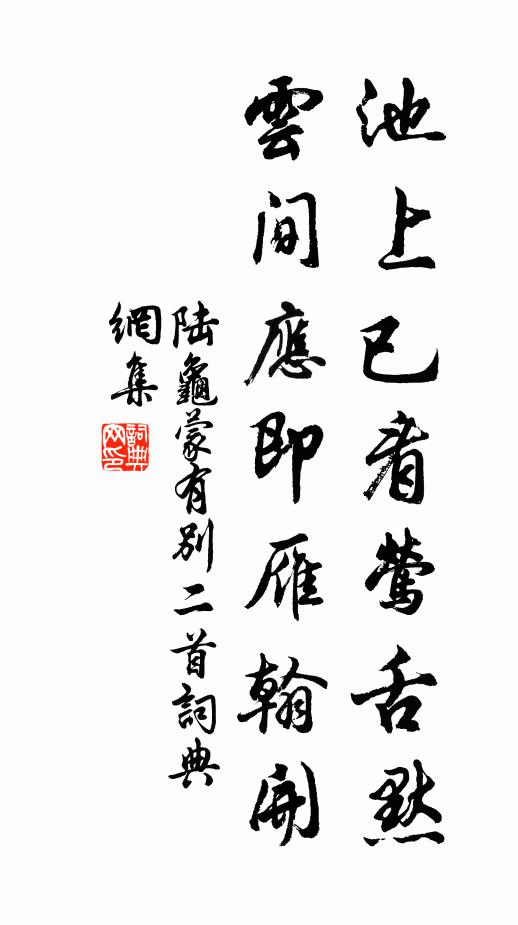 池上已看鶯舌默
雲間應即雁翰開
陆龜蒙有别二首詞典
網集
詞典
网印